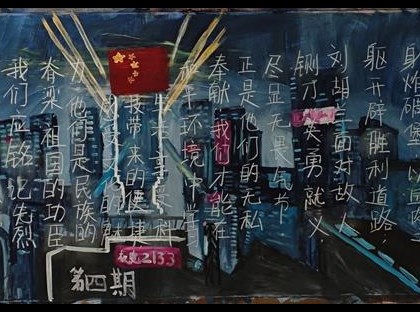 射炸碉堡 以血
躯开辟胜利道路，
刘胡兰面对敌人
铡刀 英勇就义，
尽显无畏气节
正是他们的无私
奉献 我们才能在
和平环境中学
享受科
技带来的便捷
他们是民族的
脊梁 祖国的功臣
我们应铭记先烈
第四期
2133